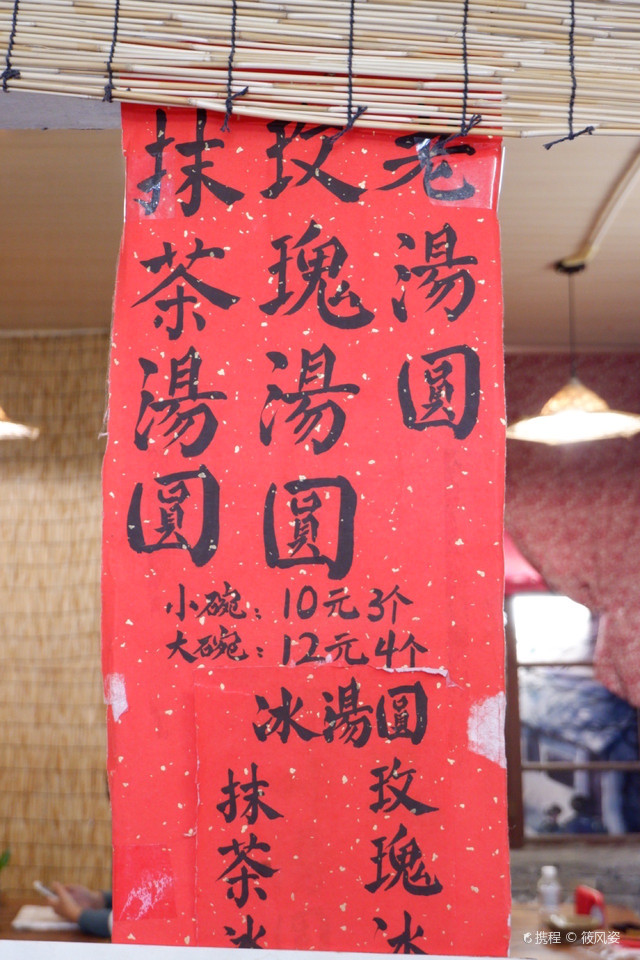 老湯圓
玫瑰湯圓
抹茶湯圓
小碗：10元3个
大碗：12元4个
冰湯圓
玫瑰冰
抹茶冰
携程 © 筱风姿